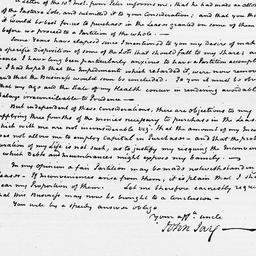 A letter of the 10th Inst. from Peter informs me, that he had made an allot
of the Pasture Lots, and submitted it to your Consideration; and that you th
it would be best for us to purchase in the Leases granted on some of them
before we proceed to a Partition of the whole. —
Some Years have elapsed since I mentioned to you my desire of mak
a specific disposition of some of the Lots that should fall to my share; a
since I have long been particularly anxious to have a Partition accomp
I had hoped that the Impediments which retarded it, were now remov
and that the Business would soon be concluded. To you it must be obvi
that my age and the State of my Health concur in rendering avoidabl
delays irreconcileable to Prudence —
But independent of these considerations, there are objections to my
applying three fourths of the monies necessary to purchase in the Leas
which with me are not inconsiderable viz: that the amount of my Inc
does not allow me to employ Capital in Purchases — and that the prob
duration of my Life is not such, as to justify my risquing the Inconven
to which Debts and Incumbrances might expose my Family. —
In my opinion a fair Partition may be made notwithstanding
Leases. If Inconveniences arise from them, it is plain that I sh
bear my Proportion of them. Let me therefore earnestly requ
that this Business may now be brought to a Conclusion —
You will by a speedy answer oblige
Your aff.te uncle
John Jay —